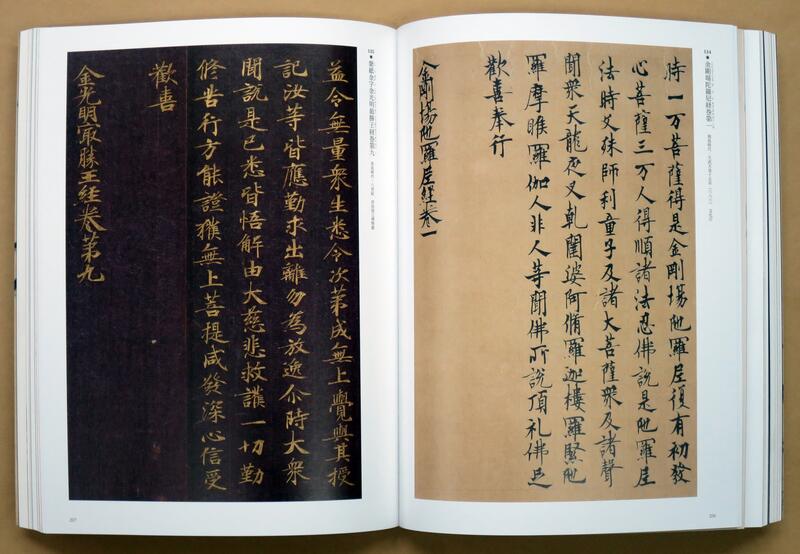 134 ●金剛場陀羅尼経巻第一
時一万菩薩得是金剛場陁羅尼復有初發
心菩薩三万人得順諸法忍佛說是陁羅尼
法時文殊師利童子及諸大菩薩衆及諸聲
聞衆天龍夜叉乹闥婆阿脩羅迦樓羅緊陁
羅摩睺羅伽人非人等聞佛所說頂礼佛足
歡喜奉行
金剛場陁羅尼經卷一
135 ●紫紙金字金光明最勝王経巻第九
益令無量衆生悉令次第成無上覺與其授
記汝等皆應勤求出離勿為放逸尒時大衆
聞說是已悉皆悟解由大慈悲救護一切勤
修苦行方能證獲無上菩提咸發深心信受
歡喜
金光明冣勝王経卷第九